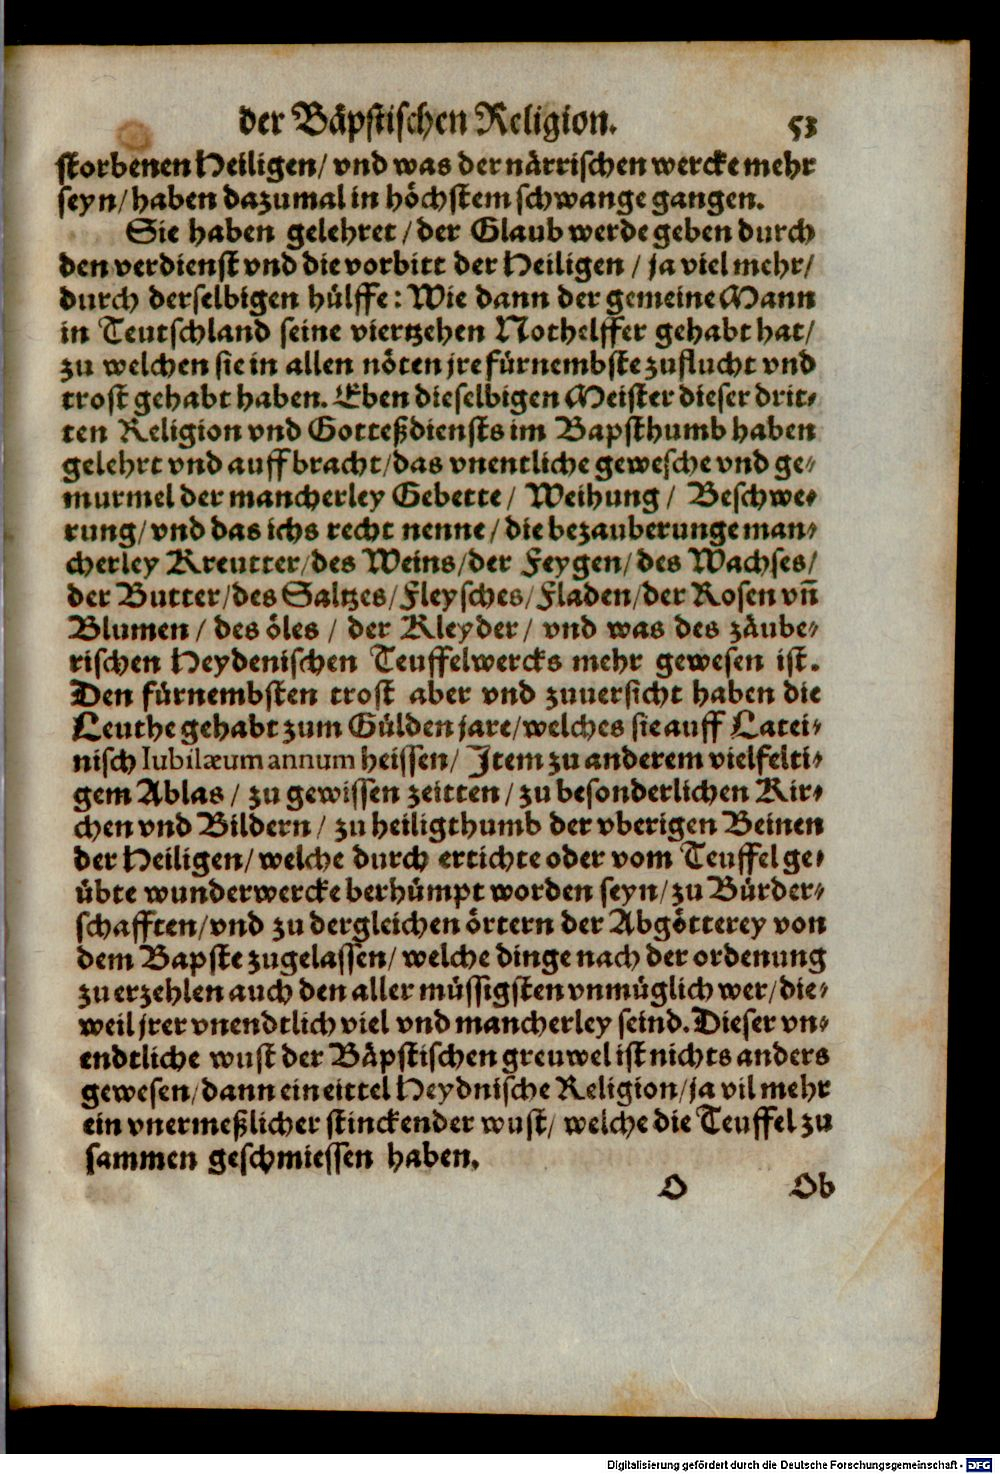 der Bäpstischen Religion. 53
storbenen Heiligen/ vnd was der närrischen wercke mehr
seyn/ haben dazumal in höchstem schwange gangen.
Sie haben gelehret/ der Glaub werde geben durch
den verdienst vnd die vorbitt der Heiligen/ ja viel mehr/
durch derselbigen hülffe: Wie dann der gemeine Mann
in Teutschland seine viertzehen Nothelffer gehabt hat/
zu welchen sie in allen nöten jre fürnembste zuflucht vnd
trost gehabt haben. Eben dieselbigen Meister dieser drit-
ten Religion vnd Gotteßdiensts im Bapsthumb haben
gelehrt vnd auff bracht/ das vnentliche gewesche vnd ge-
murmel der mancherley Gebette/ Weihung/ Beschwe-
rung/ vnd das ichs recht nenne/ die bezauberunge man-
cherley Kreutter/ des Weins/ der Feygen/ des Wachses/
der Butter/ des Saltzes/ Fleysches/ Fladen/ der Rosen vn̄
Blumen/ des öles/ der Kleyder/ vnd was des zäube-
rischen Heydenischen Teuffelwercks mehr gewesen ist.
Den fürnembsten trost aber vnd zuuersicht haben die
Leuthe gehabt zum Gülden jare/ welches sie auff Latei-
nisch Iubilæum annum heissen/ Item zu anderem vielfelti-
gem Ablas/ zu gewissen zeitten/ zu besonderlichen Kir-
chen vnd Bildern/ zu heiligthumb der vberigen Beinen
der Heiligen/ welche durch ertichte oder vom Teuffel ge-
übte wunderwercke berhümpt worden seyn/ zu Bürder-
schafften/ vnd zu dergleichen örtern der Abgötterey von
dem Bapste zugelassen/ welche dinge nach der ordenung
zu erzehlen auch den aller müssigsten vnmüglich wer/ die-
weil jrer vnendtlich viel vnd mancherley seind. Dieser vn-
endtliche wust der Bäpstischen greuwel ist nichts anders
gewesen/ dann ein eittel Heydnische Religion/ ja vil mehr
ein vnermeßlicher stinckender wust/ welche die Teuffel zu
sammen geschmiessen haben.
O Ob
Digitalisierung gefördert durch die Deutsche Forschungsgemeinschaft - DFG